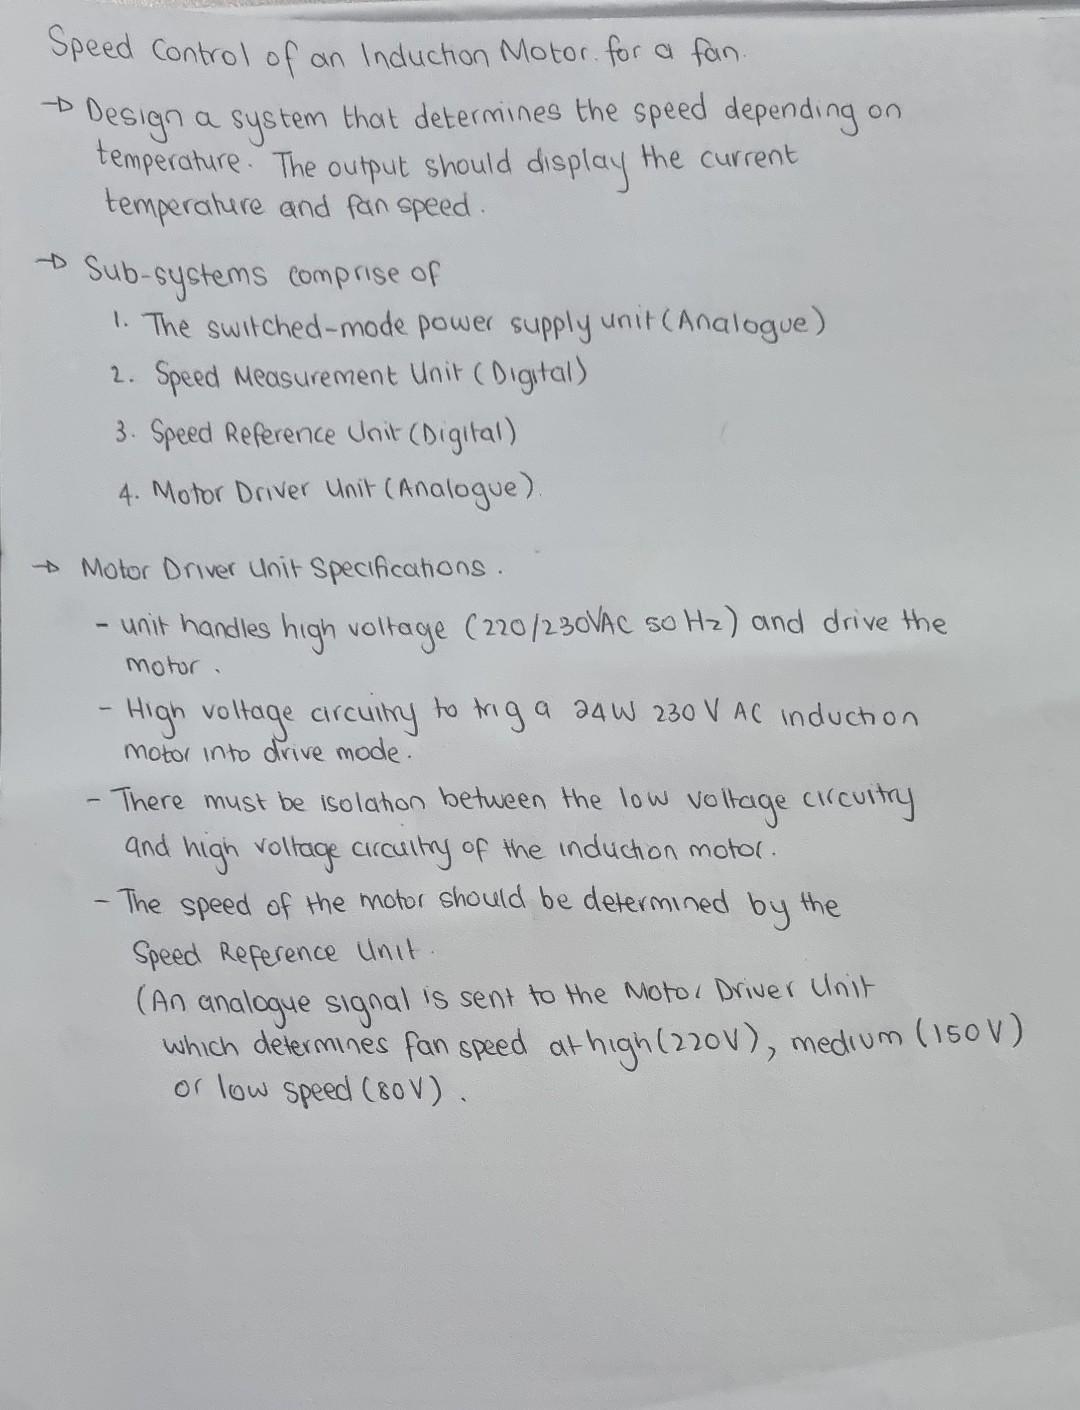 Speed Control of an Induction Motor. for a fan.
→ Design a system that determines the speed depending on
temperature. The output should display the current
temperature and fan speed.
→ Sub-systems comprise of
1. The switched-mode power supply unit (Analogue)
2. Speed Measurement Unit (Digital)
3. Speed Reference Unit (Digital)
4. Motor Driver Unit (Analogue).
→ Motor Driver Unit Specifications.
- unit handles high voltage (220/230VAC 50 Hz) and drive the
motor.
- High voltage circuitry to trig a 24W 230 V AC induction
motor into drive mode.
- There must be isolation between the low voltage circuitry
and high voltage circuitry of the induction motor.
- The speed of the motor should be determined by the
Speed Reference Unit.
(An analogue signal is sent to the Motor Driver Unit
which determines fan speed at high (220V), medium (150V)
or low speed (80V).